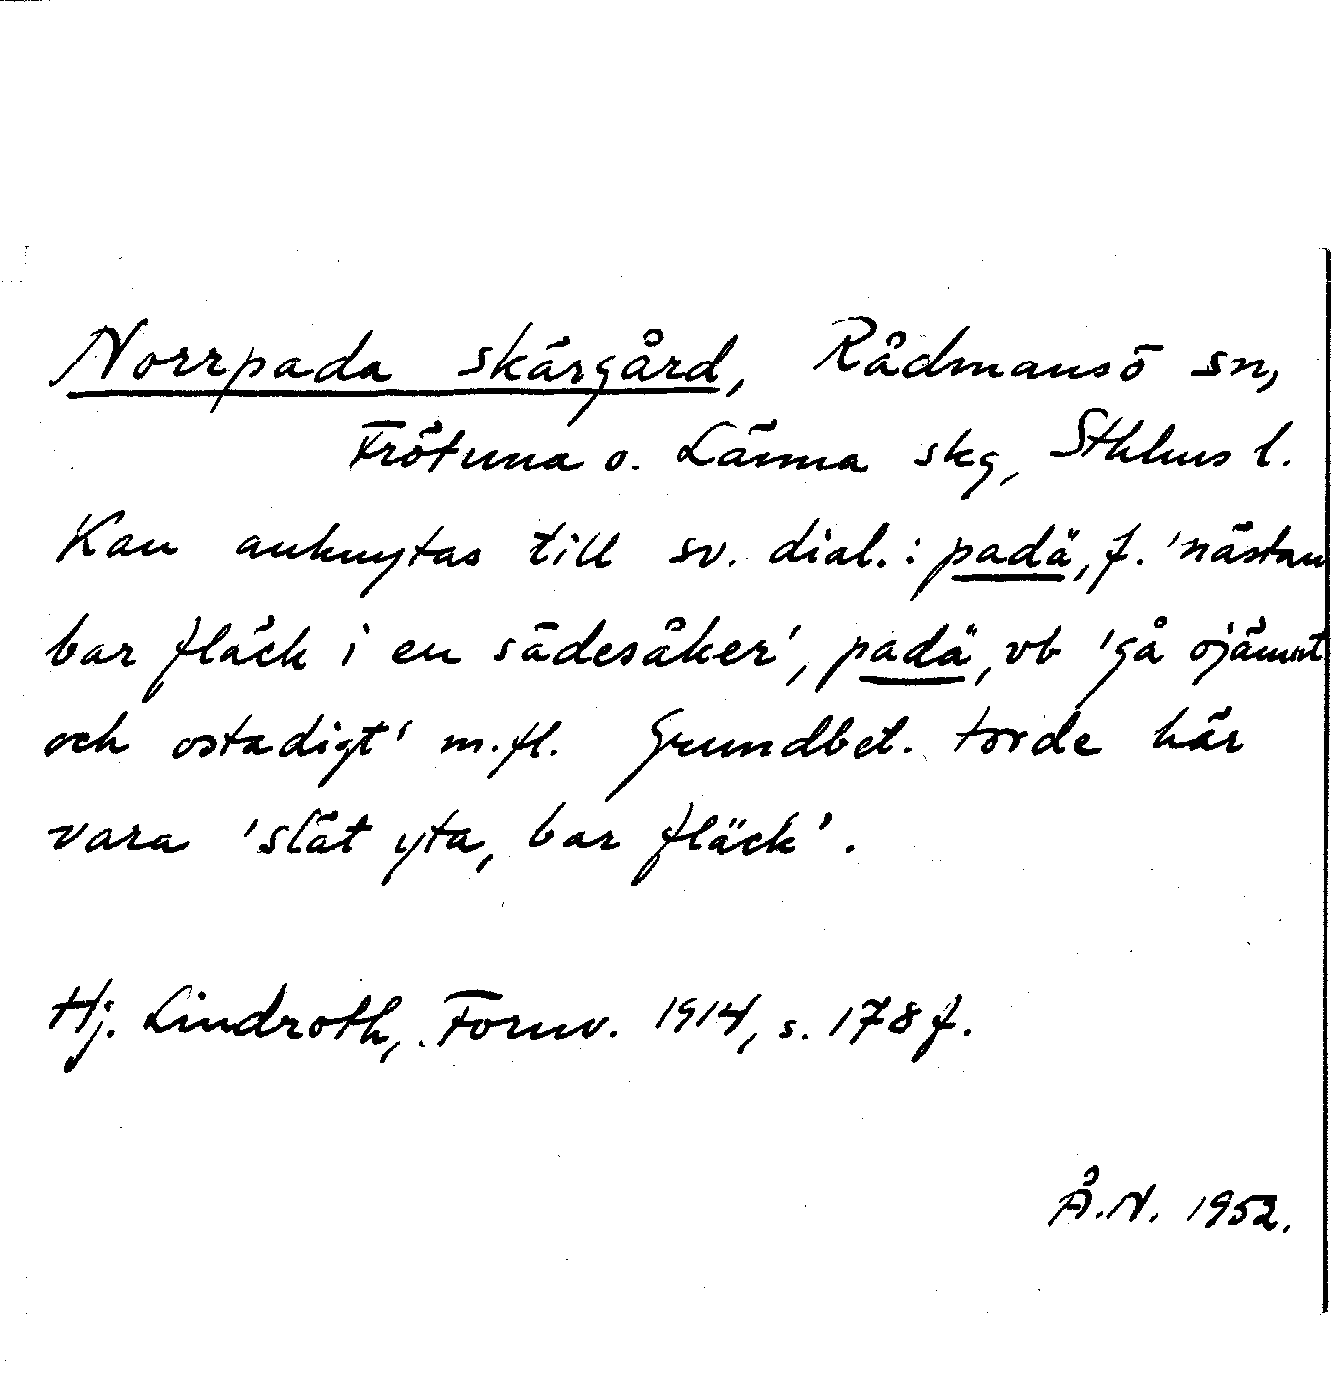 Norrpada skärgård, Rådmansö sn,
Frötuna o. Länna skg, Sthlms l.
Kan anknytas till sv. dial.: padä, f. 'nästan
bar fläck i en sädesåker', padä, vb 'gå ojämnt
och ostadigt' m.fl. Grundbet. torde här
vara 'slät yta, bar fläck'.
Hj. Lindroth, Fornv. 1914, s. 178 f.
Å.N. 1952.